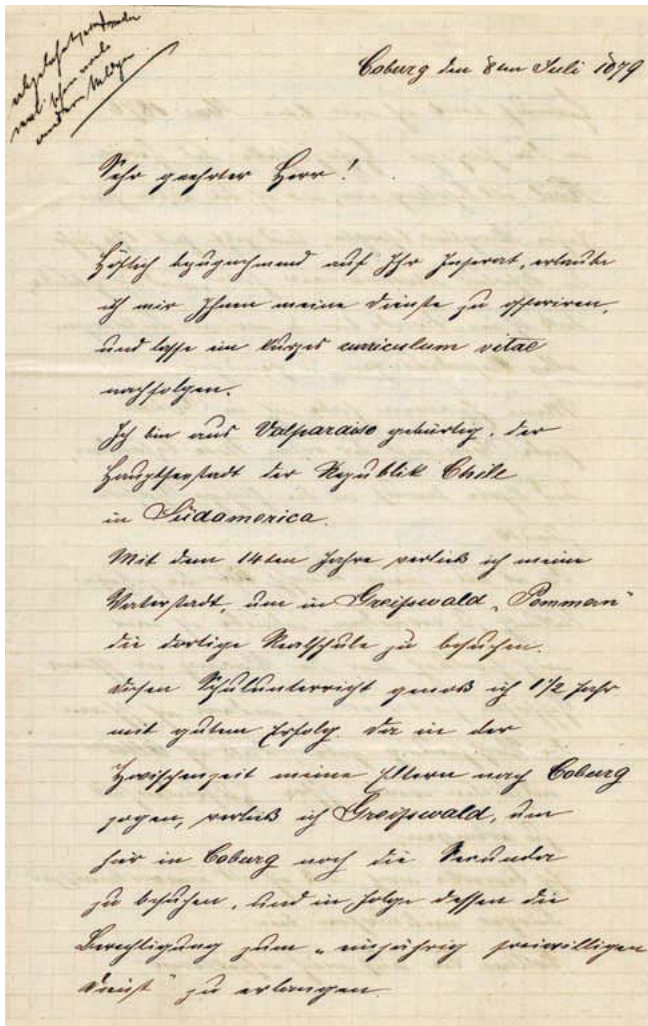 Coburg den 8ten Juli 1879
Sehr geehrter Herr!
Höflich bezugnehmend auf Ihr Inserat, erlaube
ich mir Ihnen meine Dienste zu offeriren,
und lasse ein kurzes curriculum vitae
nachfolgen.
Ich bin aus Valparaiso gebürtig, der
Haupthafenstadt der Republik Chile
in Südamerica.
Mit dem 14ten Jahre verließ ich meine
Vaterstadt, um in Greifswald „Pommern“
die dortige Realschule zu besuchen.
Diesen Schulunterricht genoß ich 1 1/2 Jahr
mit gutem Erfolg. Da in der
Zwischenzeit meine Eltern nach Coburg
zogen, verließ ich Greifswald, um
hier in Coburg noch die Secunda
zu besuchen, und in Folge dessen die
Berechtigung zum „einjährig freiwilligen
Dienst“ zu erlangen.